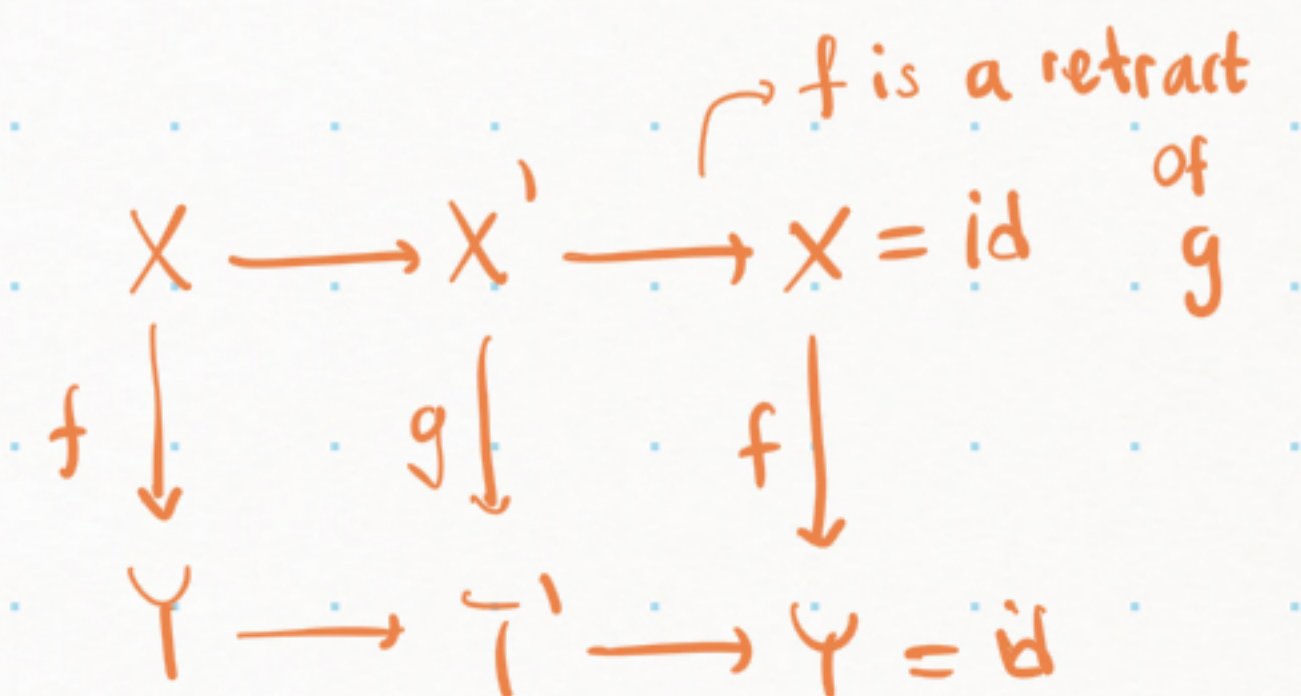 f is a retract
of
g
X → X' → X = id
f g f
Y → T' → Y = id